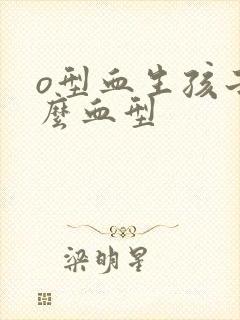 o型血生孩子
麼血型
梁明星